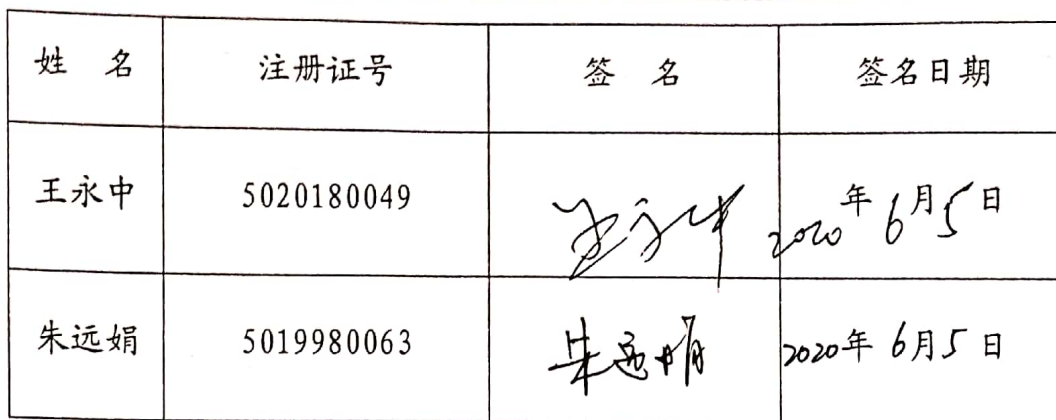 姓 名 注册证号 签 名 签名日期
王永中 5020180049 王永中 2020年6月5日
朱远娟 5019980063 朱远娟 2020年6月5日